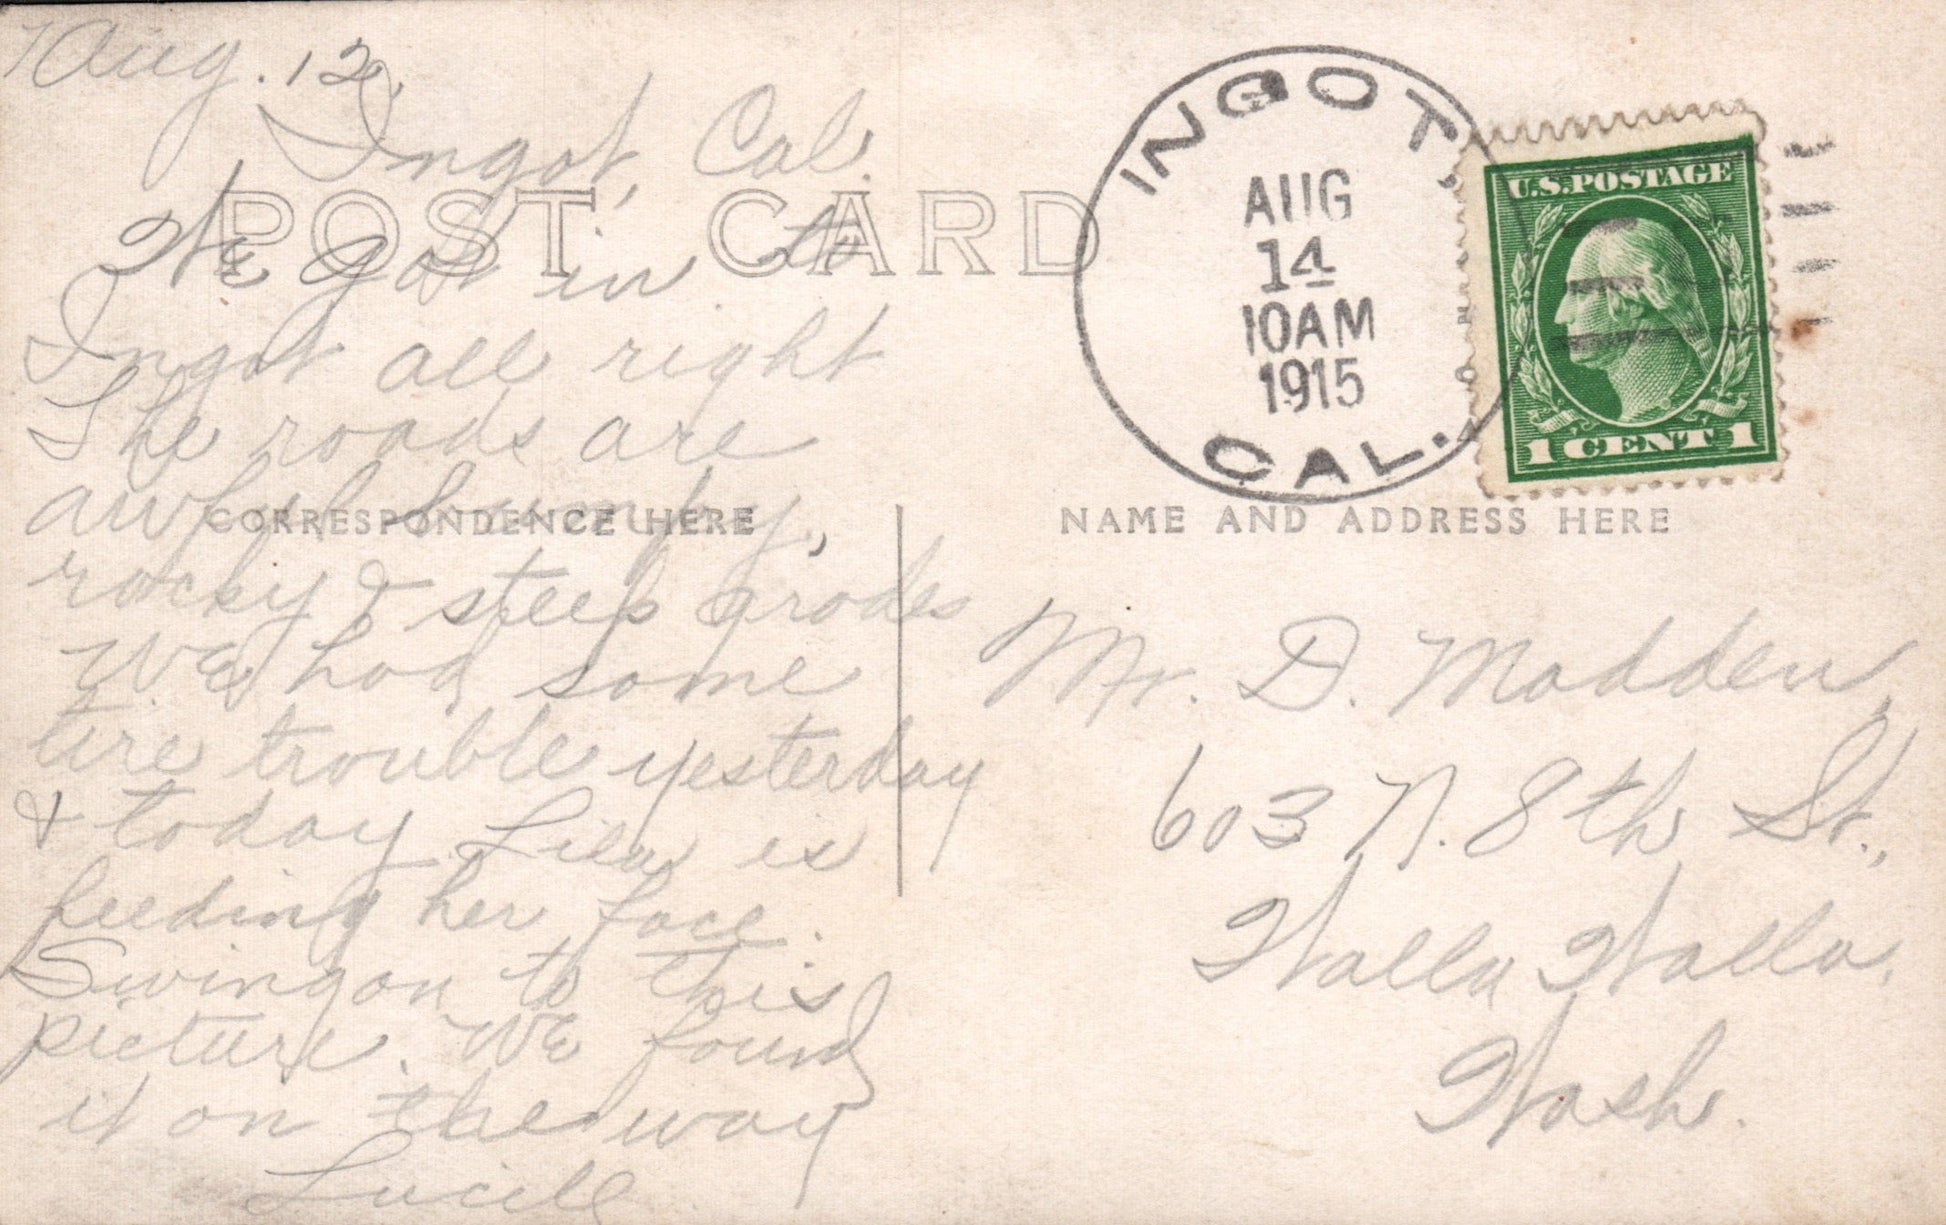 Aug. 12,
Ingot, Cal.
We got in to
Ingot all right
The roads are
awful bumpy,
rocky & steep grades
We had some
tire trouble yesterday
& today. Lila is
feeding her face.
Swing on to this
picture. We found
it on the way
Lucile
POST CARD
CORRESPONDENCE HERE
NAME AND ADDRESS HERE
INGOT,
AUG
14
10AM
1915
CAL.
U.S. POSTAGE
1 CENT 1
Mr. D. Madden,
603 N. 8th St.,
Walla Walla,
Wash.